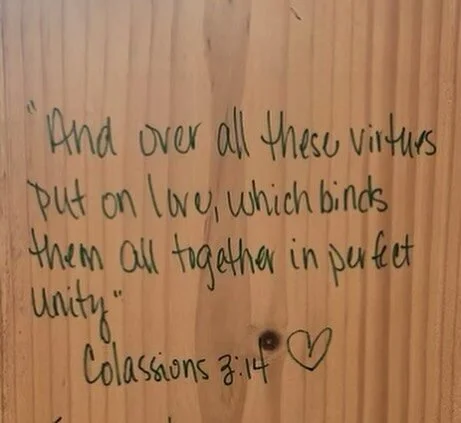 "And over all these virtues
put on love, which binds
them all together in perfect
unity"
Colassions 3:14